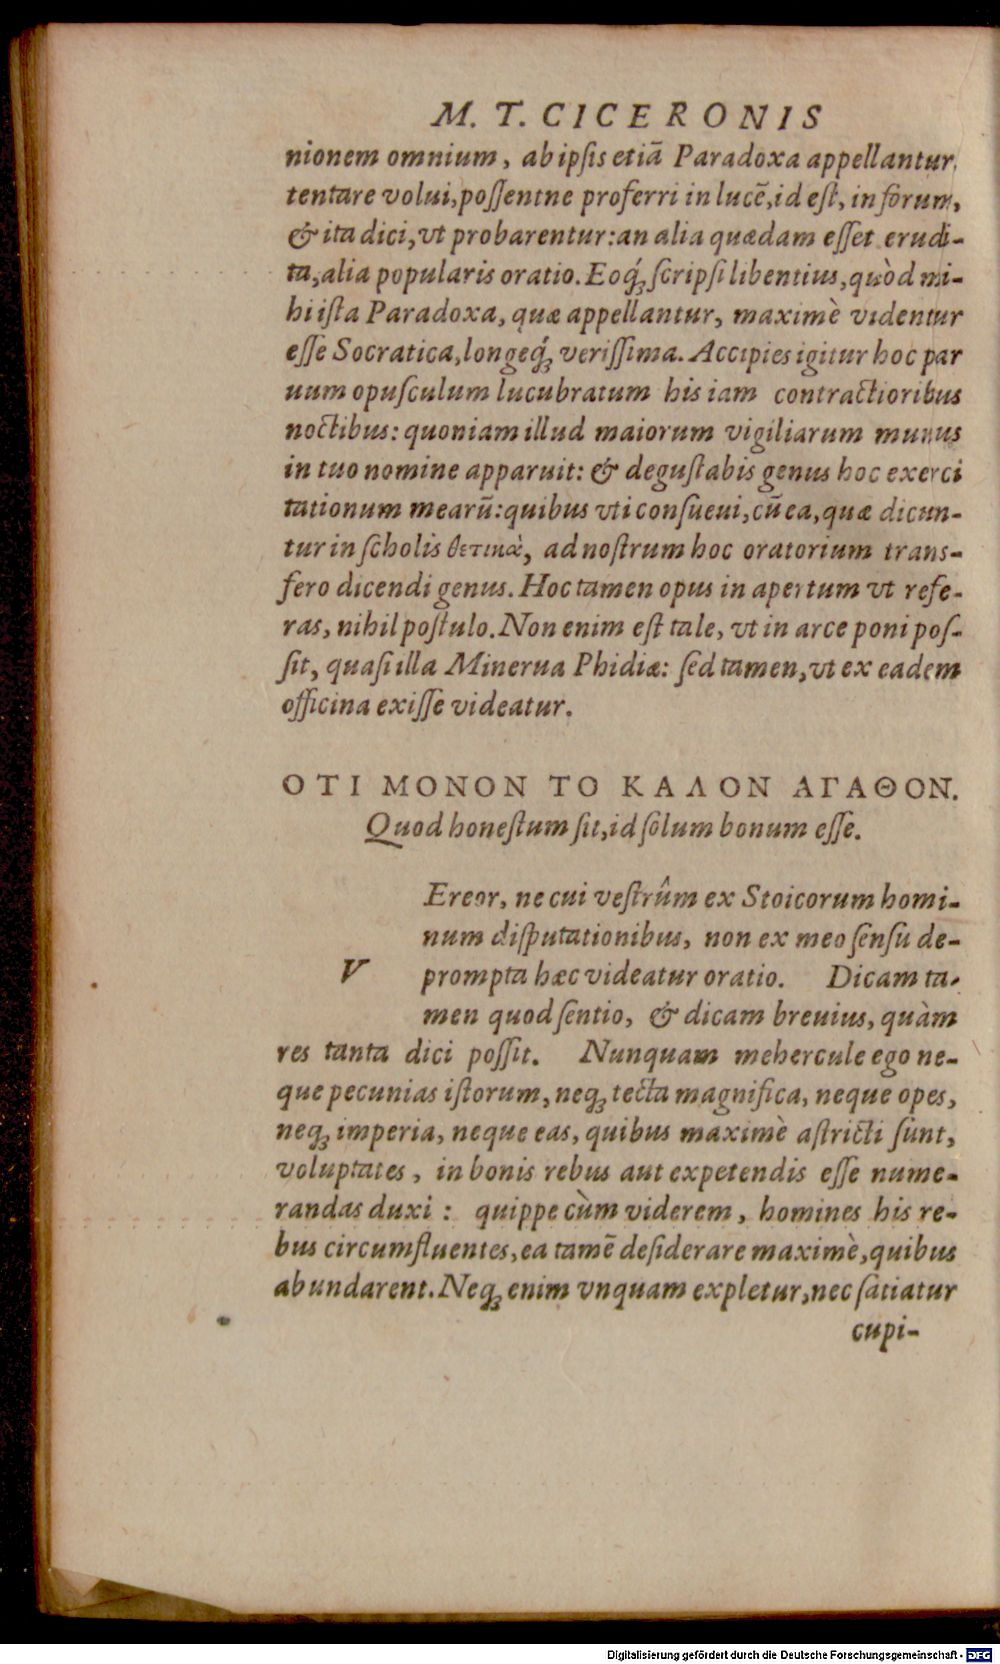 M. T. CICERONIS
nionem omnium, ab ipſis etiã Paradoxa appellantur,
tentare volui, poſſentne proferri in lucẽ, id eſt, in forum,
& ita dici, vt probarentur: an alia quædam eſſet erudi-
ta, alia popularis oratio. Eoq́; ſcripſi libentius, quòd mi-
hi iſta Paradoxa, quæ appellantur, maximè videntur
eſſe Socratica, longeq́; veriſſima. Accipies igitur hoc par
uum opuſculum lucubratum his iam contractioribus
noctibus: quoniam illud maiorum vigiliarum munus
in tuo nomine apparuit: & deguſtabis genus hoc exerci
tationum mearũ: quibus vti conſueui, cũ ea, quæ dicun-
tur in ſcholis θετικὰ, ad noſtrum hoc oratorium trans-
fero dicendi genus. Hoc tamen opus in apertum vt refe-
ras, nihil poſtulo. Non enim eſt tale, vt in arce poni poſ-
ſit, quaſi illa Minerua Phidiæ: ſed tamen, vt ex eadem
officina exiſſe videatur.
ΟΤΙ ΜΟΝΟΝ ΤΟ ΚΑΛΟΝ ΑΓΑΘΟΝ.
Quod honeſtum ſit, id ſolum bonum eſſe.
VEreor, ne cui veſtrûm ex Stoicorum homi-
num diſputationibus, non ex meo ſenſu de-
prompta hæc videatur oratio. Dicam ta-
men quod ſentio, & dicam breuius, quàm
res tanta dici poſſit. Nunquam mehercule ego ne-
que pecunias iſtorum, neq; tecta magnifica, neque opes,
neq; imperia, neque eas, quibus maximè aſtricti ſunt,
voluptates, in bonis rebus aut expetendis eſſe nume-
randas duxi: quippe cùm viderem, homines his re-
bus circumfluentes, ea tamẽ deſiderare maximè, quibus
abundarent. Neq; enim vnquam expletur, nec ſatiatur
cupi-
Digitalisierung gefördert durch die Deutsche Forschungsgemeinschaft - DFG